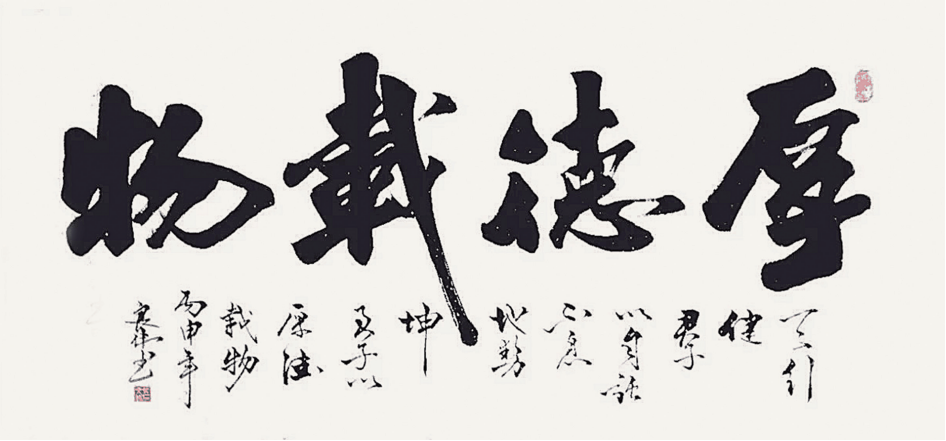 厚德載物
天行
健
君子
以自强
不息
地势
坤
君子以
厚德
載物
丙申年